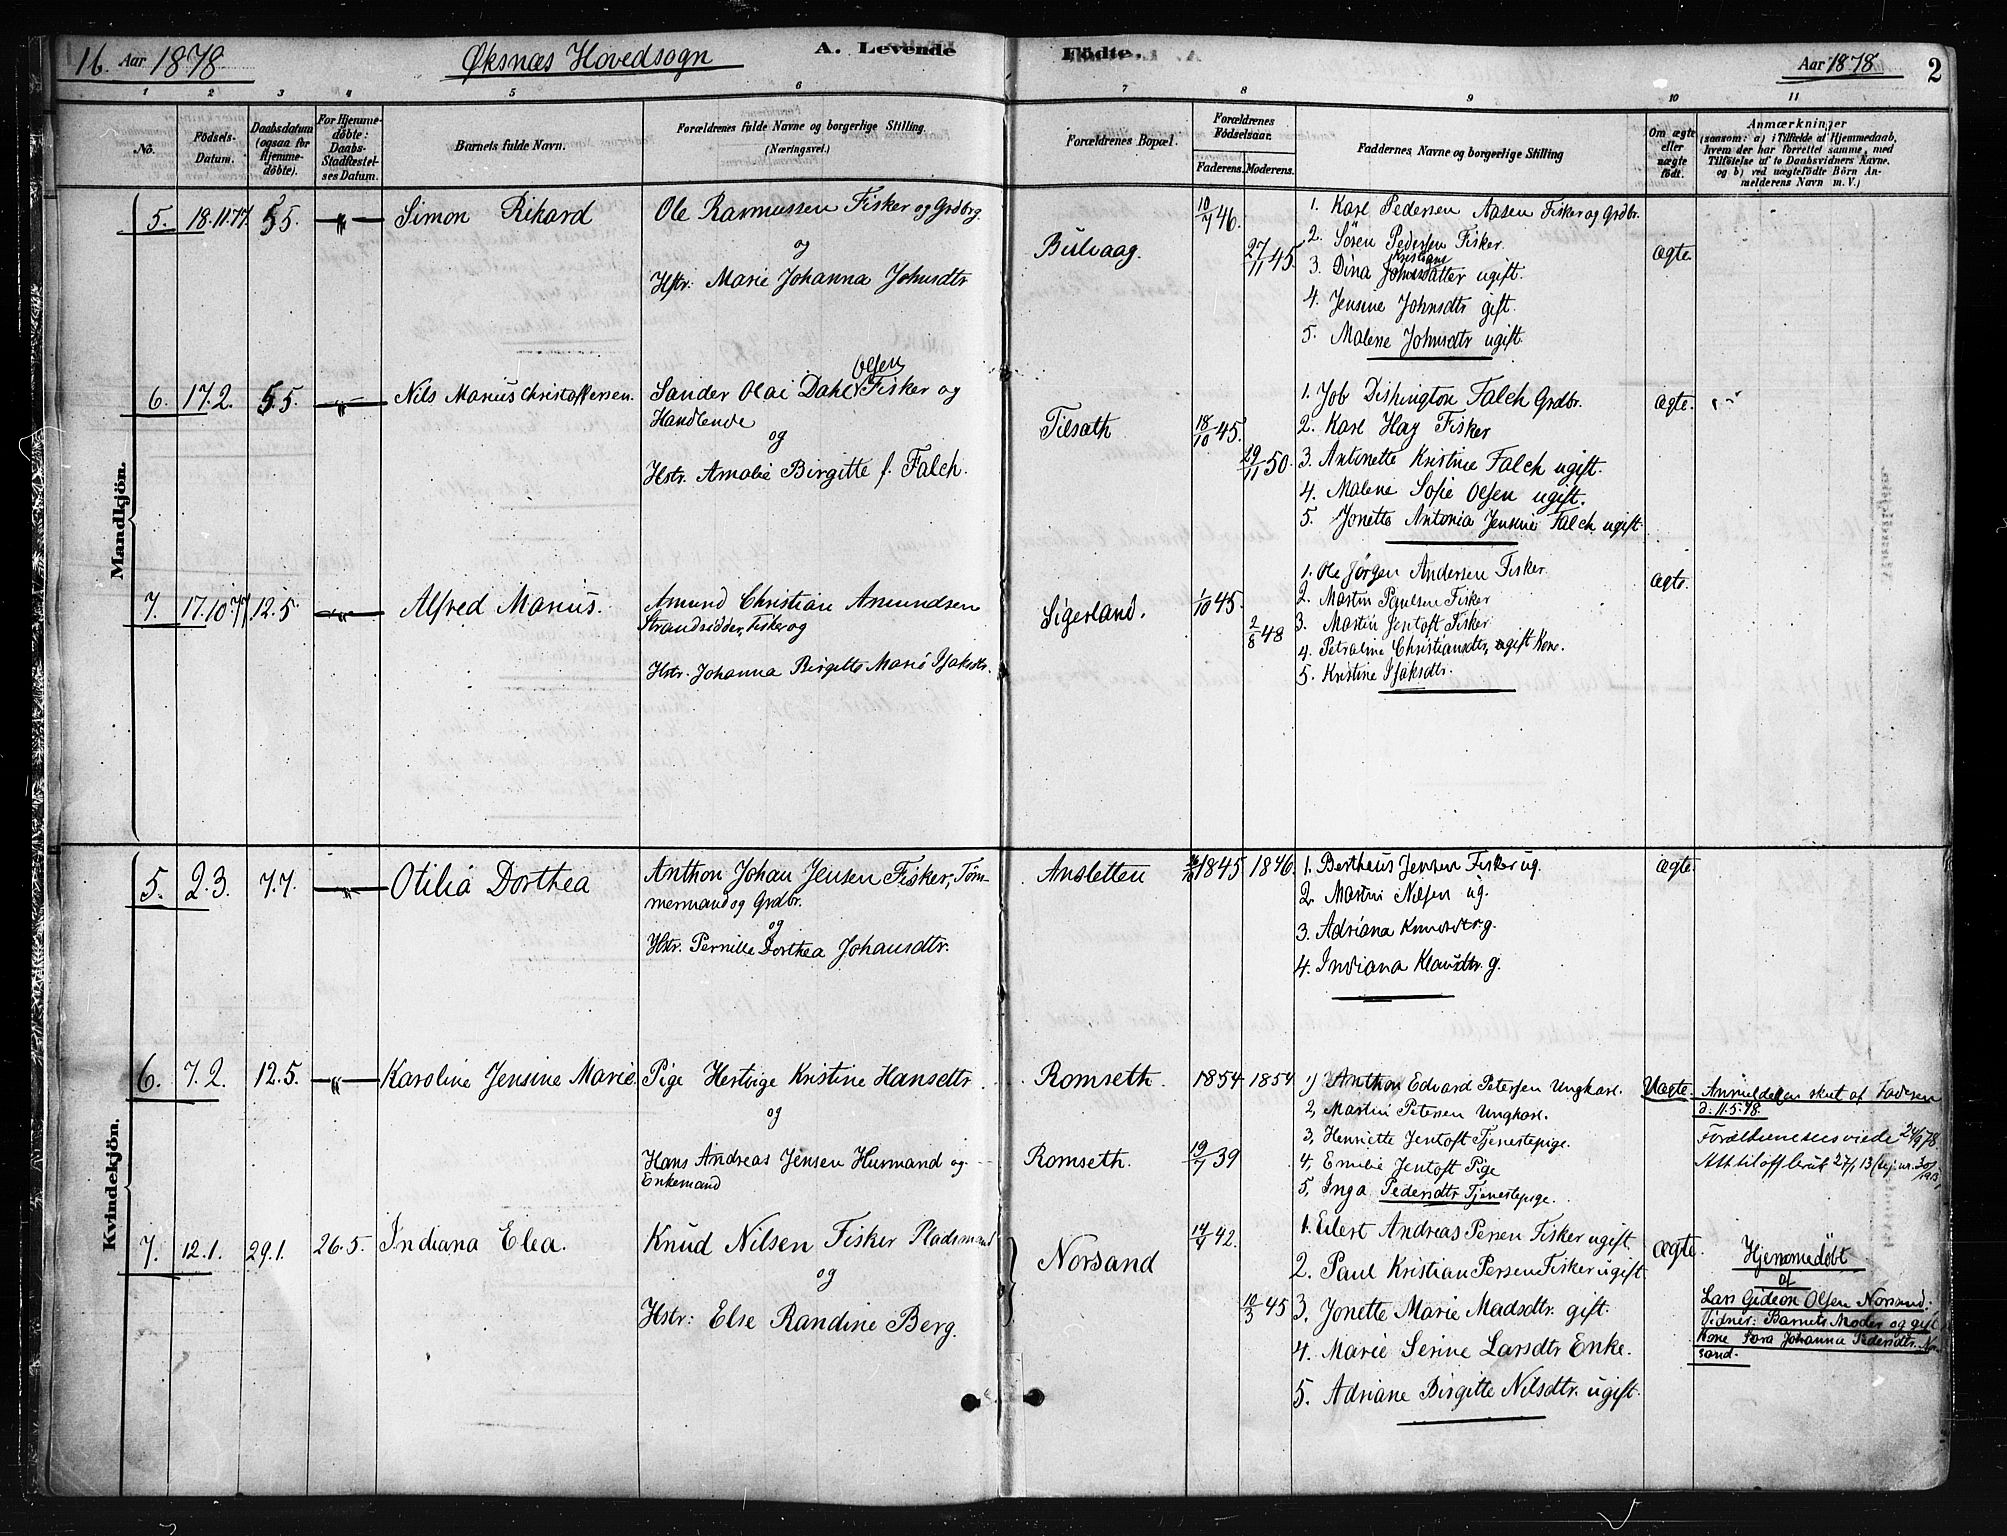 16. Aar 1878. Øksnæs Hovedsogn A. Levende Födte. Aar 1878 2
1 2 3 4 5 6 7 8 9 10 11
No.
Födsels-
Datum.
Daabsdatum
(ogsaa for
Hjemme-
döbte).
For Hjemme-
döbte:
Daabs-
Stadfæstel-
ses Datum.
Barnets fulde Navn.
Forældrenes fulde Navne og borgerlige Stilling.
(Næringsvei.)
Forældrenes Bopæl.
Forældrenes
Födselsaar.
Faderens. Moderens.
Faddernes Navne og borgerlige Stilling
Om ægte
eller
uægte
födt.
Anmærkninger
(saasom: a) i Tilfælde af Hjemmedaab,
hvem der har forrettet samme, med
Tilföielse af to Daabsvidners Navne.
og b) ved uægtefödte Börn An-
melderens Navn m. V.)
Mandkjön.
5. 18.11.77. 5.5. — " — Simon Rikard
Ole Rasmussen Fisker og Grdbrg.
og
Hstr: Marie Johanna Johnsdtr
Bulvaag.
10/7 46.
27/11 45.
1. Karl Pedersen Aasen Fisker og Grdbr.
2. Sören Pedersen Fisker.
3. Dina Kristians datter ugift.
4. Jensine Johnsdtr gift.
5. Malene Johnsdtr ugift.
ægte.
6. 17.2. 5.5. — " — Nils Marius Christoffersen.
Olsen
Sander Olai Dahl Fisker og
Handlende
og
Hstr. Amalie Birgitte f. Falch.
Tilsath
18/10 45.
29/11 50.
1. Job Dishington Falch Grdbr.
2. Karl Hay Fisker
3. Antonette Kristine Falch ugift.
4. Malene Sofie Olsen ugift.
5. Jonette Antonia Jensine Falch ugift.
ægte.
7. 17.10.77. 12.5 — " — Alfred Marius.
Amund Christian Amundsen
Strandsidder, Fisker og
Hstr. Johanna Birgitte Marie Isaksdtr.
Sigerland.
1/10 45.
2/8 48
1. Ole Jørgen Andersen Fisker
2. Martin Paulsen Fisker
3. Martin Jentoft Fisker
4. Petraline Christiansdtr, gift Kone.
5. Kristine Isaksdtr.
ægte.
Kvindekjön.
5. 2.3. 7.7. — " — Otilia Dorthea
Anthon Johan Jensen Fisker, Töm-
mermand og Grdbr.
og
Hstr. Pernille Dorthea Johansdtr.
Ansletten
1845 1846.
1. Bertheus Jensen Fisker ug.
2. Martin Nilsen ug.
3. Adriana Knudsdtr g.
4. Indiana Klausdtr. g.
ægte.
6. 7.2. 12.5. — " — Karoline Jensine Marie.
Pige Hertvige Kristine Hansdtr
og
Hans Andreas Jensen Husmand og
Enkemand
Romseth. 1854. 1854
Romseth. 19/7 39
1) Anthon Edvard Petersen Ungkarl.
2, Martin Petersen Ungkarl.
3, Henriette Jentoft Tjenestepige.
4, Emilie Jentoft Pige
5, Inga Pedersdtr Tjenestepige.
Uægte.
Anmeldelsen skut af Faderen
d. 11.5.78.
7. 12.1. 29.1. 26.5. Indiana Elea.
Knud Nilsen Fisker Pladsmand
og
Hstr: Else Randine Berg.
Norsand
14/4 42.
10/3 45
1. Eilert Andreas Persen Fisker ugift.
2. Paul Kristian Persen Fisker ugift.
3. Jonette Marie Madsdtr. gift.
4. Marie Serine Larsdtr Enke.
5. Adriane Birgitte Nilsdtr. ugift.
Ægte.
Hjemmedøbt
af
Lars Gideon Olsen Norsand;
Vidner: Barnets Moder og gift
Kone Sara Johanna Pedersdtr. Nor-
sand.